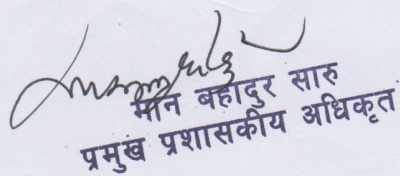 मान बहादुर सारु
प्रमुख प्रशासकीय अधिकृत